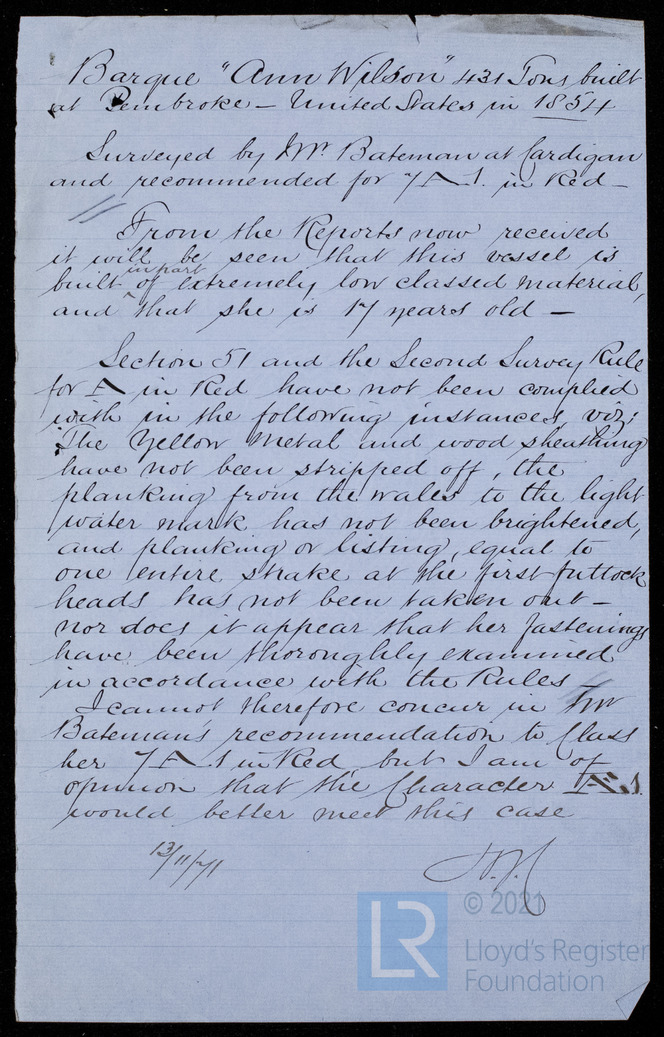 Barque "Ann Wilson" 431 Tons built
at Pembroke – United States in 1854
Surveyed by Mr Bateman at Cardigan
and recommended for 7 A 1. in Red –
From the Reports now received
it will be seen that this vessel is
in part
built of extremely low classed material,
and that she is 17 years old –
Section 51 and the Second Survey Rule
for A in Red have not been complied
with in the following instances, viz:
The Yellow Metal and wood sheathing
have not been stripped off, the
planking from the wales to the light
water mark has not been brightened,
and planking or listing, equal to
one entire strake at the first futtock
heads has not been taken out –
nor does it appear that her fastenings
have been thoroughly examined
in accordance with the Rules –
I cannot therefore concur in Mr
Bateman's recommendation to Class
her 7 A 1 in Red but I am of
opinion that the Character
would better meet this case
13/11/71
© 2021
LR
Lloyd's Register
Foundation